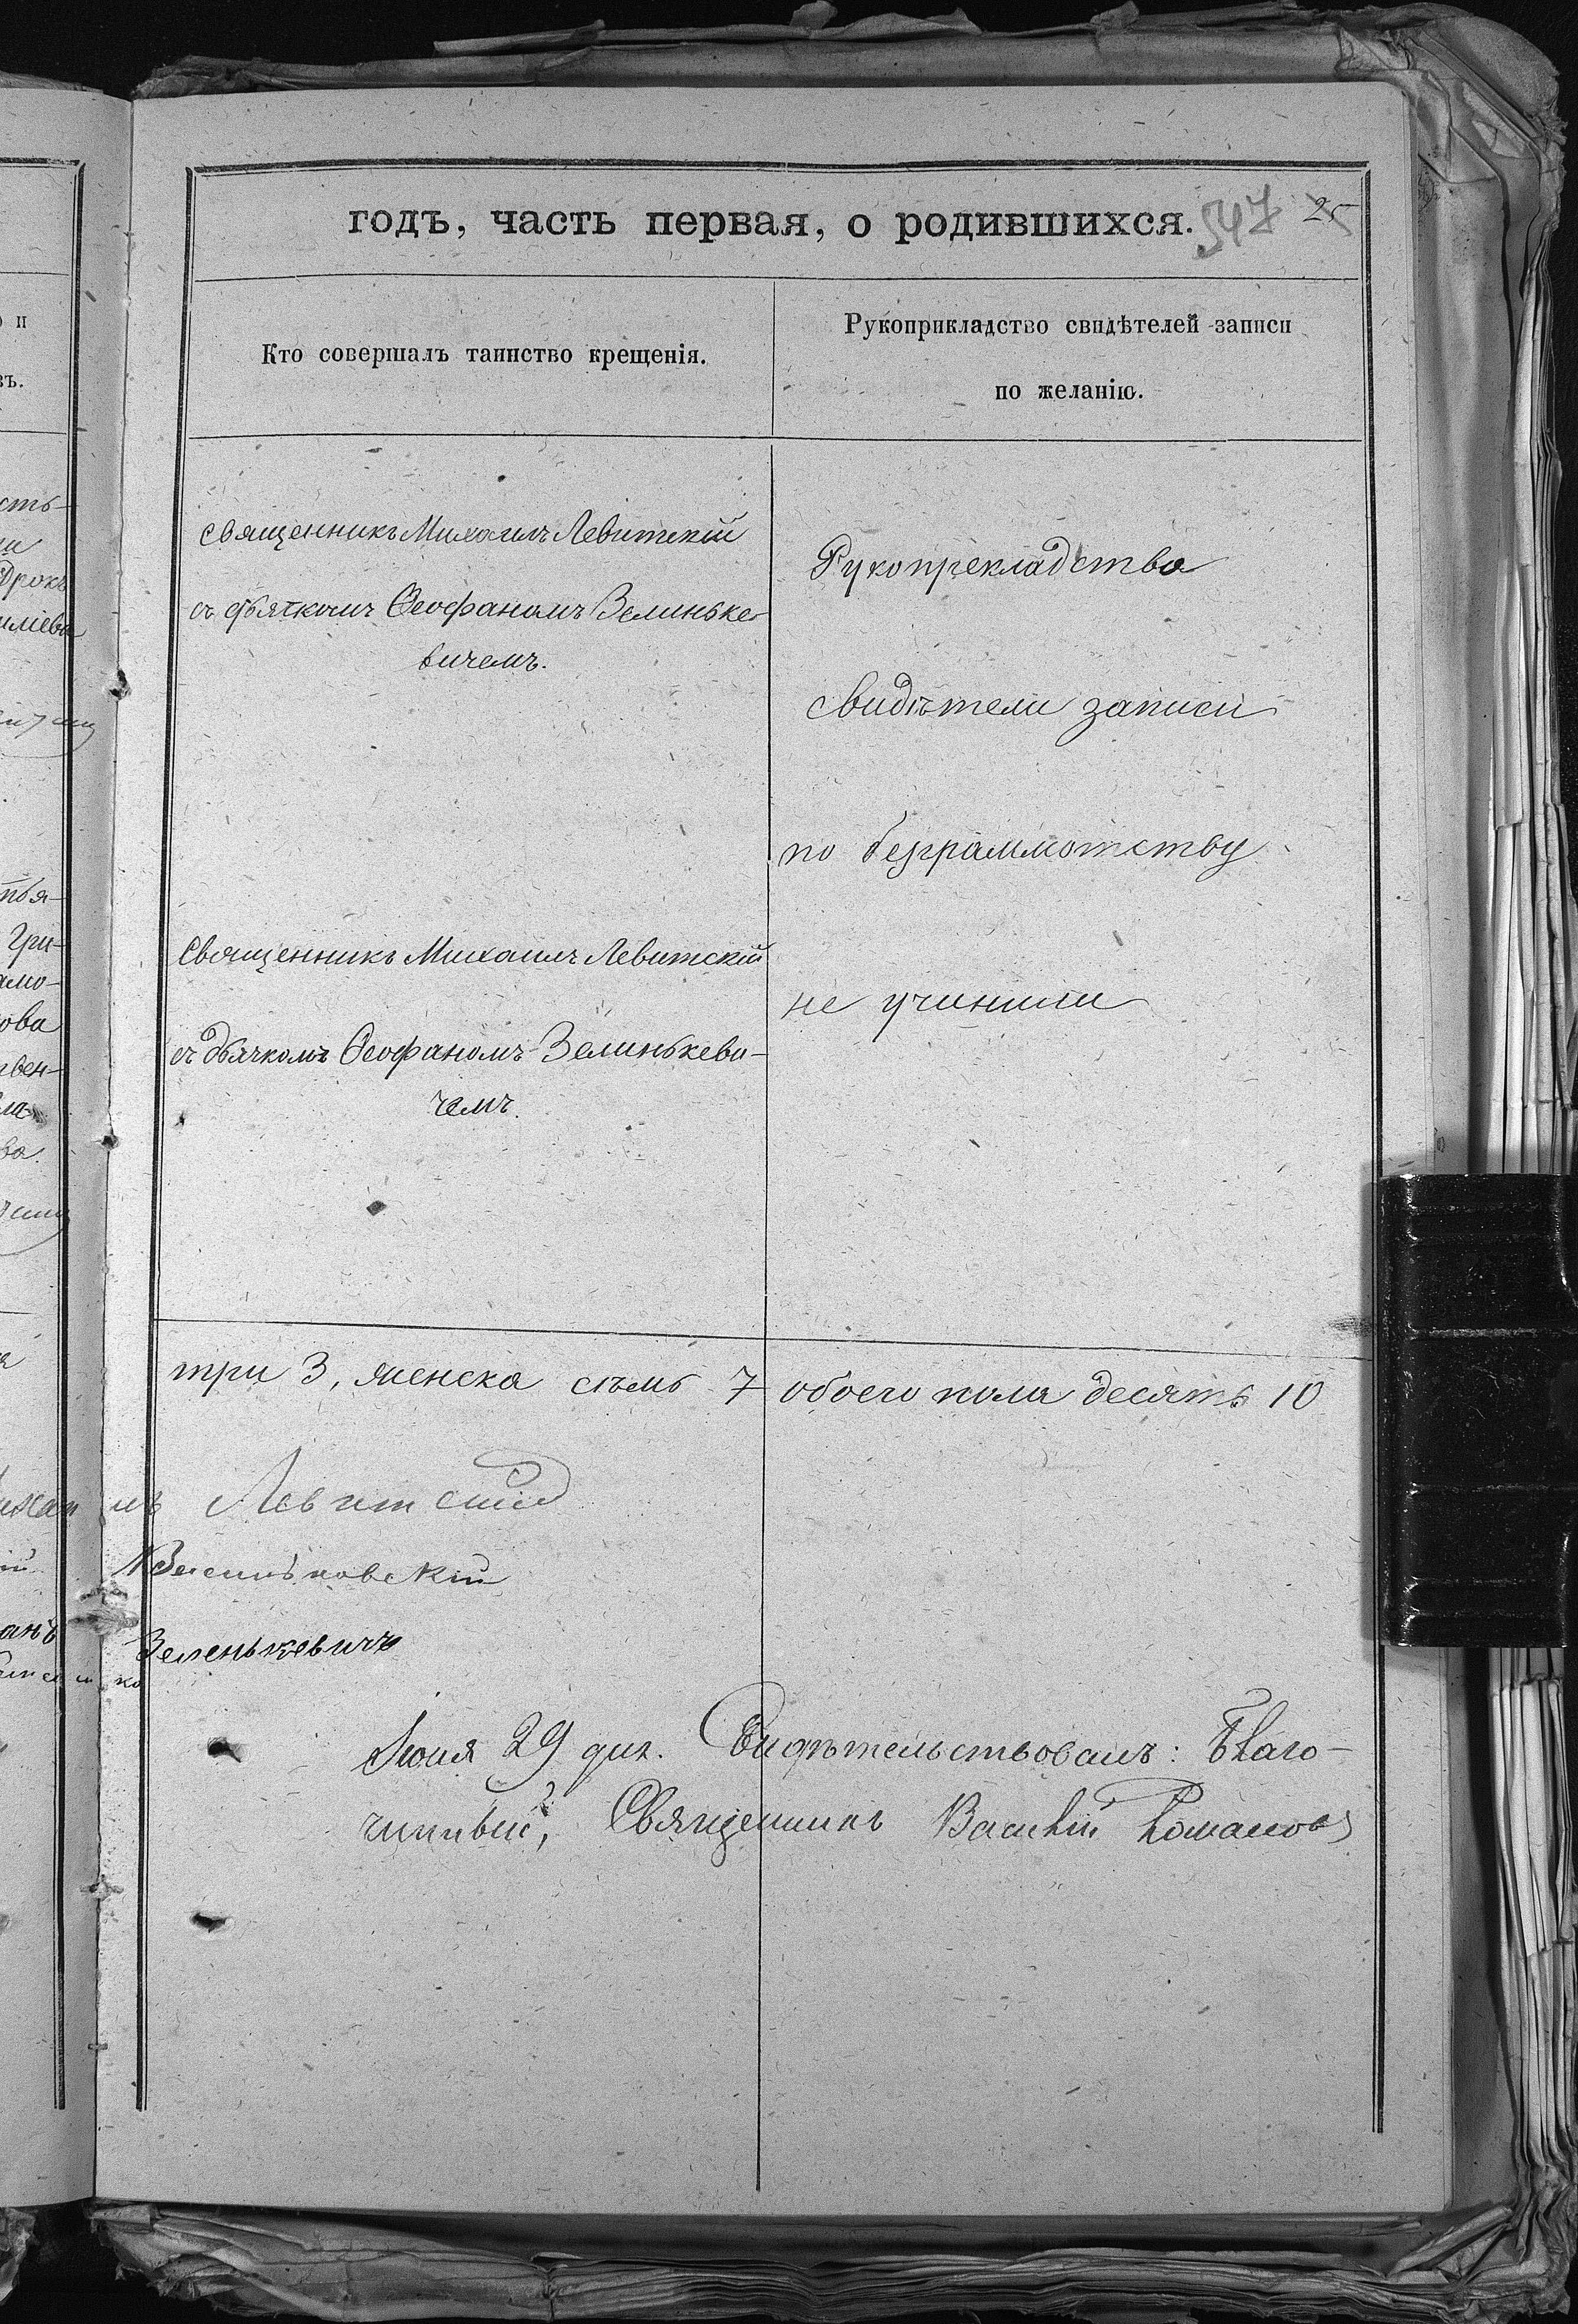 годъ, часть первая, о родившихся. 547 25
Кто совершалъ таинство крещенія.
Рукоприкладство свидѣтелей записи
по желанію.
священникъ Михаилъ Левитскій
съ дьячкомъ Ѳеофаномъ Зелиньке-
вичемъ.
Рукопрекладства
свидѣтели записи
по безграммотству
не учинили
Священникъ Михаилъ Левитскій
съ дьячкомъ Ѳеофаномъ Зелинькеви-
чемъ.
три 3, женска семь 7 обоего пола десять 10
Левитскій
Зеленькевичъ
Іюля 29 дня. Свидѣтельствовалъ: Благо-
чинный, Священникъ Василій Романовъ